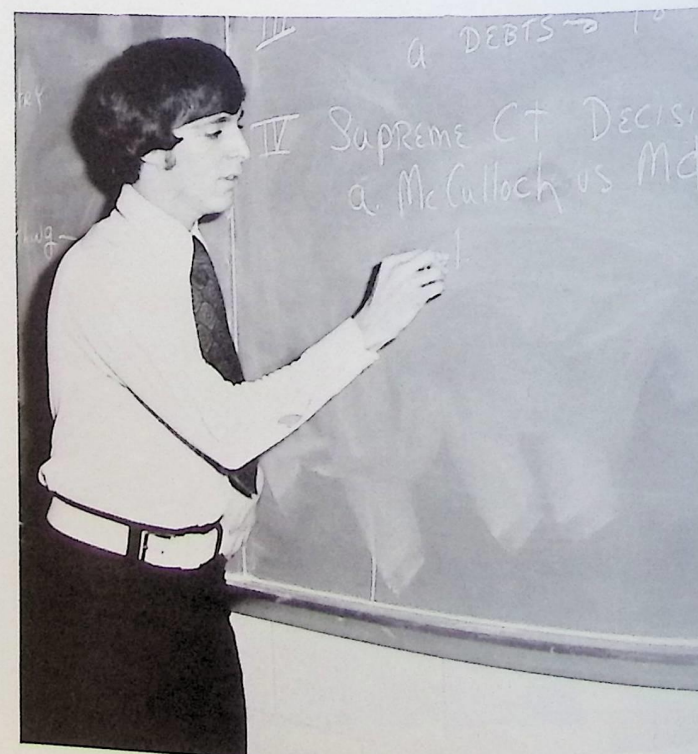 III
a DEBTS→
IV Supreme Ct Decis
a. McCulloch vs Md
1.